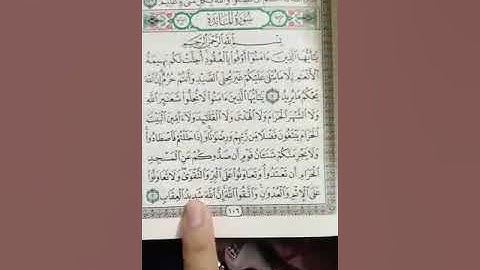 سُورَةُ المَائِدَةِ
بِسْمِ ٱللَّهِ ٱلرَّحْمَٰنِ ٱلرَّحِيمِ
يَٰٓأَيُّهَا ٱلَّذِينَ ءَامَنُوٓا۟ أَوْفُوا۟ بِٱلْعُقُودِ أُحِلَّتْ لَكُم بَهِيمَةُ
ٱلْأَنْعَٰمِ إِلَّا مَا يُتْلَىٰ عَلَيْكُمْ غَيْرَ مُحِلِّى ٱلصَّيْدِ وَأَنتُمْ حُرُمٌ إِنَّ ٱللَّهَ
يَحْكُمُ مَا يُرِيدُ ١ يَٰٓأَيُّهَا ٱلَّذِينَ ءَامَنُوا۟ لَا تُحِلُّوا۟ شَعَٰٓئِرَ ٱللَّهِ
وَلَا ٱلشَّهْرَ ٱلْحَرَامَ وَلَا ٱلْهَدْىَ وَلَا ٱلْقَلَٰٓئِدَ وَلَآ ءَآمِّينَ ٱلْبَيْتَ
ٱلْحَرَامَ يَبْتَغُونَ فَضْلًا مِّن رَّبِّهِمْ وَرِضْوَٰنًا وَإِذَا حَلَلْتُمْ فَٱصْطَادُوا۟
وَلَا يَجْرِمَنَّكُمْ شَنَـَٔانُ قَوْمٍ أَن صَدُّوكُمْ عَنِ ٱلْمَسْجِدِ
ٱلْحَرَامِ أَن تَعْتَدُوا۟ وَتَعَاوَنُوا۟ عَلَى ٱلْبِرِّ وَٱلتَّقْوَىٰ وَلَا تَعَاوَنُوا۟
عَلَى ٱلْإِثْمِ وَٱلْعُدْوَٰنِ وَٱتَّقُوا۟ ٱللَّهَ إِنَّ ٱللَّهَ شَدِيدُ ٱلْعِقَابِ ٢
١٠٦